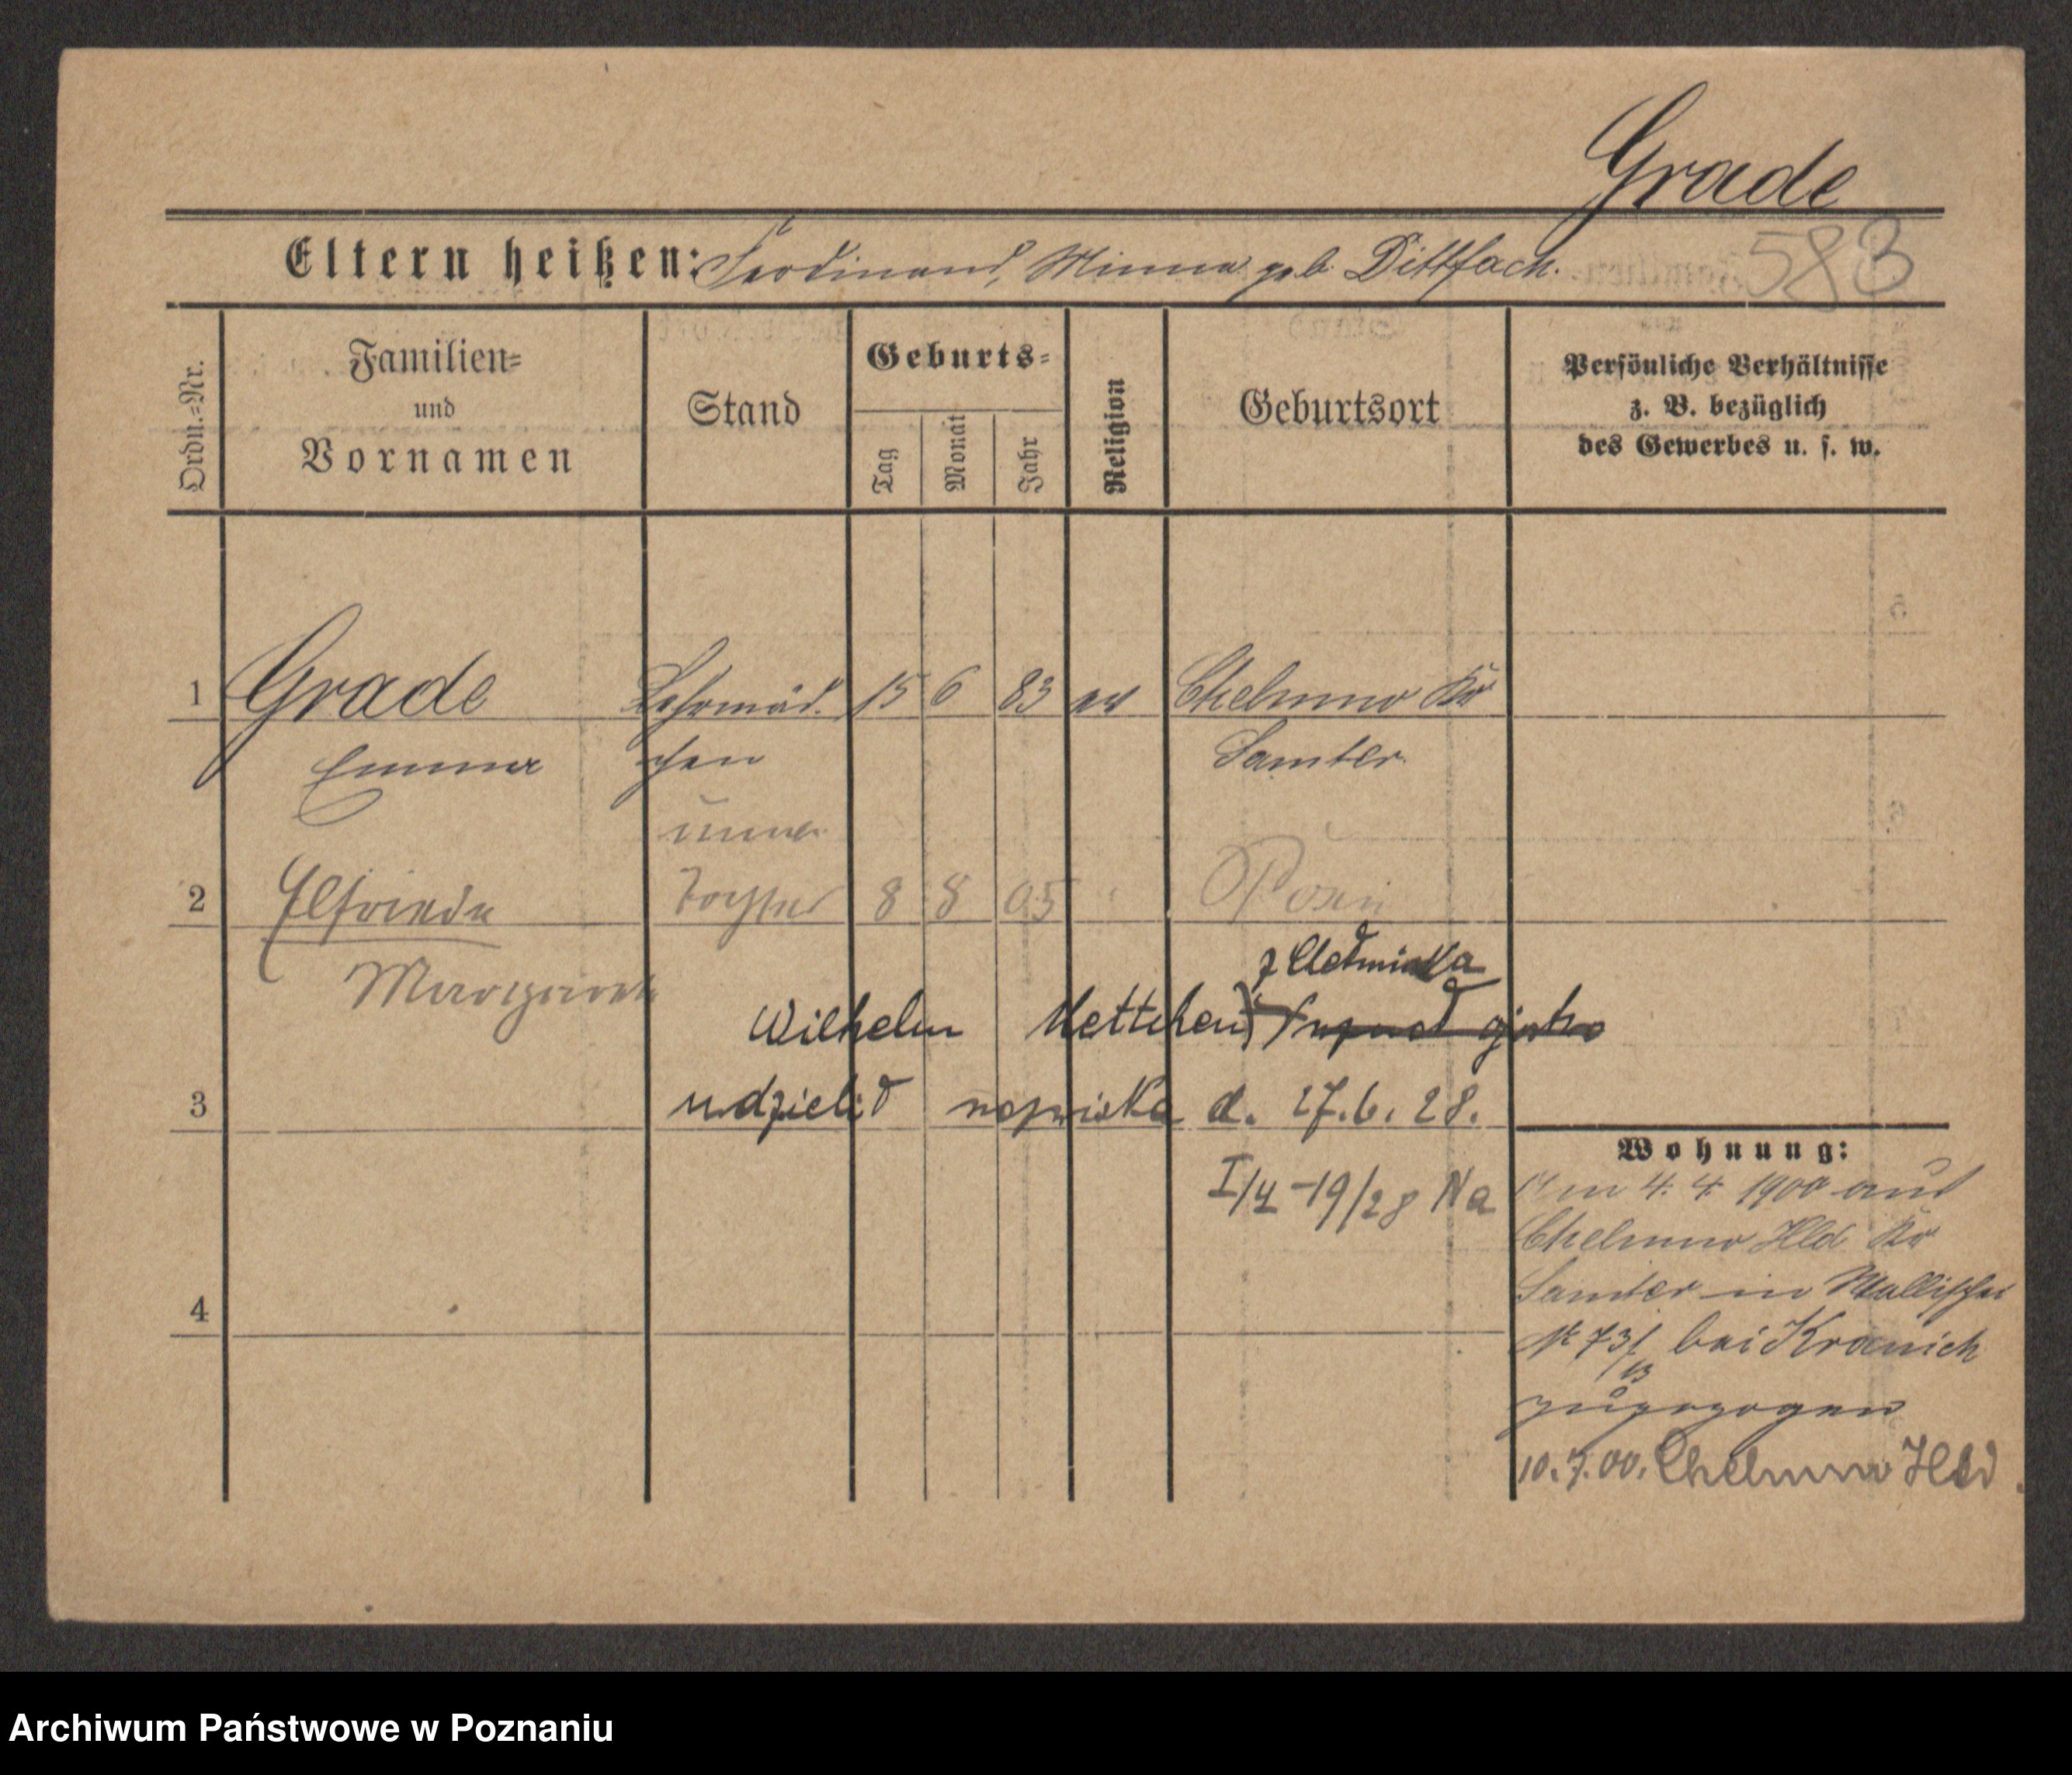 Grade
Eltern heißen: Ferdinand, Minna geb. Dittfach.
583
Ordn.-Nr.
Familien-
und
Vornamen
Stand
Geburts-
Tag
Monat
Jahr
Religion
Geburtsort
Persönliche Verhältnisse
z. B. bezüglich
des Gewerbes u. s. w.
1 Grade Lehrmäd. 15 6 83 ev Chelmno Kr
Emma chen Samter
2 Elfriede Tochter 8 8 05 Posen
Margareth
Wilhelm
3 udzielił nazwiska d. 27.6.28.
I/4-19/28 Na
4
Wohnung:
Am 4. 4. 1900 aus
Chelmno Hld Kr
Samter in Wallischei
No 73/ bei Kranich
zugezogen
10.7.00. Chelmno Hld.
Archiwum Państwowe w Poznaniu